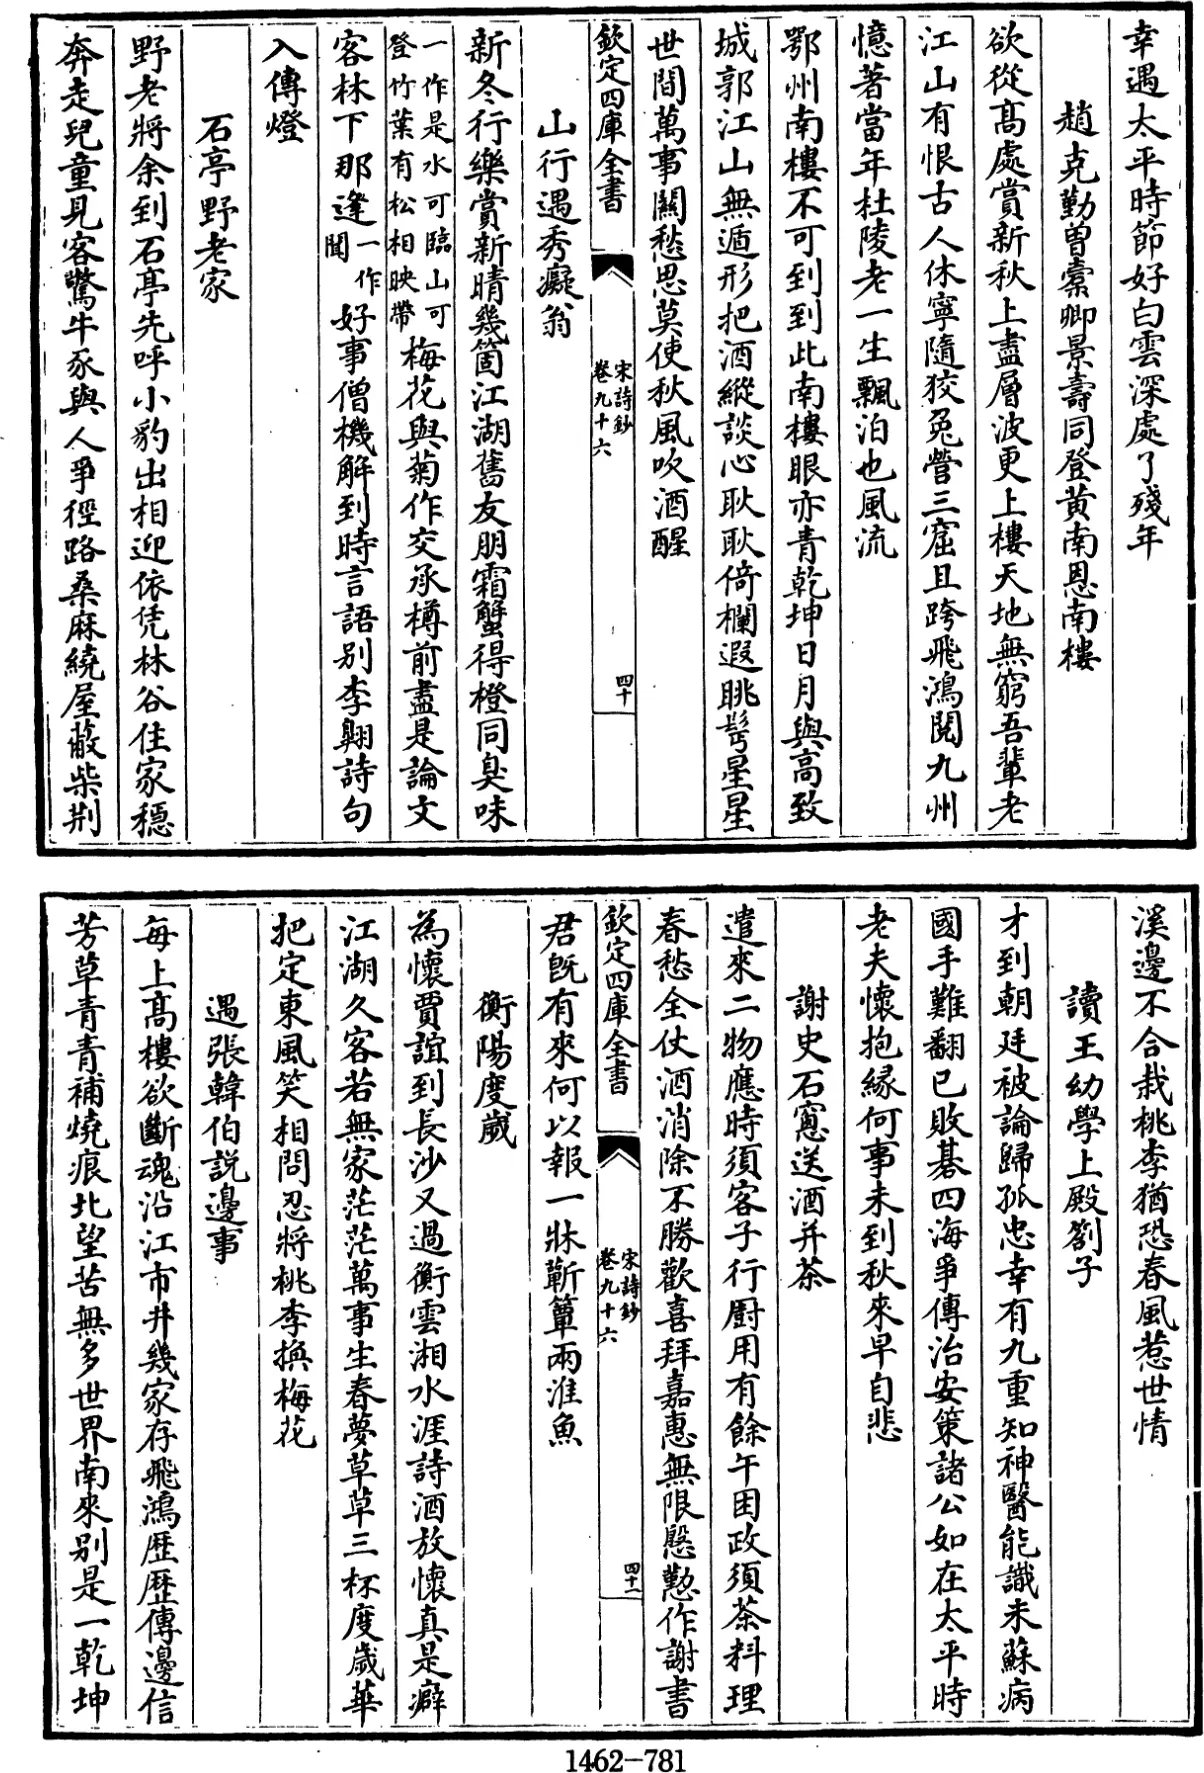 幸遇太平時節好白雲深處了殘年
趙克勤曾橐卿景壽同登黄南恩南樓
欲從髙處賞新秋上盡層波更上樓天地無窮吾輩老
江山有恨古人休寧隨狡兔營三窟且跨飛鴻閱九州
憶著當年杜陵老一生飄泊也風流
鄂州南樓不可到到此南樓眼亦青乾坤日月與高致
城郭江山無遁形把酒縱談心耿耿倚欄遐眺髩星星
世間萬事關愁思莫使秋風吹酒醒
欽定四庫全書
宋詩鈔
卷九十六
四十
山行遇秀癡翁
新冬行樂賞新晴幾箇江湖舊友朋霜蟹得橙同臭味
一作是水可臨山可
登竹葉有松相映帶
梅花與菊作交承樽前盡是論文
客林下那逢
一作
聞
好事僧機解到時言語别李翺詩句
入傳燈
石亭野老家
野老將余到石亭先呼小豹出相迎依凭林谷住家穩
奔走兒童見客驚牛豕與人爭徑路桑麻繞屋蔽柴荆
溪邊不合栽桃李猶恐春風惹世情
讀王幼學上殿劄子
才到朝廷被論歸孤忠幸有九重知神醫能識未蘇病
國手難翻已敗碁四海爭傳治安策諸公如在太平時
老夫懷抱縁何事未到秋來早自悲
謝史石窻送酒并茶
遣來二物應時須客子行厨用有餘午困政須茶料理
春愁全仗酒消除不勝歡喜拜嘉惠無限慇懃作謝書
欽定四庫全書
宋詩鈔
卷九十六
四十一
君旣有來何以報一牀蘄簟兩淮魚
衡陽度歲
為懷賈誼到長沙又過衡雲湘水涯詩酒放懷真是癖
江湖久客若無家茫茫萬事生春夢草草三杯度歲華
把定東風笑相問忍將桃李換梅花
遇張韓伯説邊事
每上髙樓欲斷魂沿江市井幾家存飛鴻歴歴傳邊信
芳草青青補燒痕北望苦無多世界南來别是一乾坤
1462-781